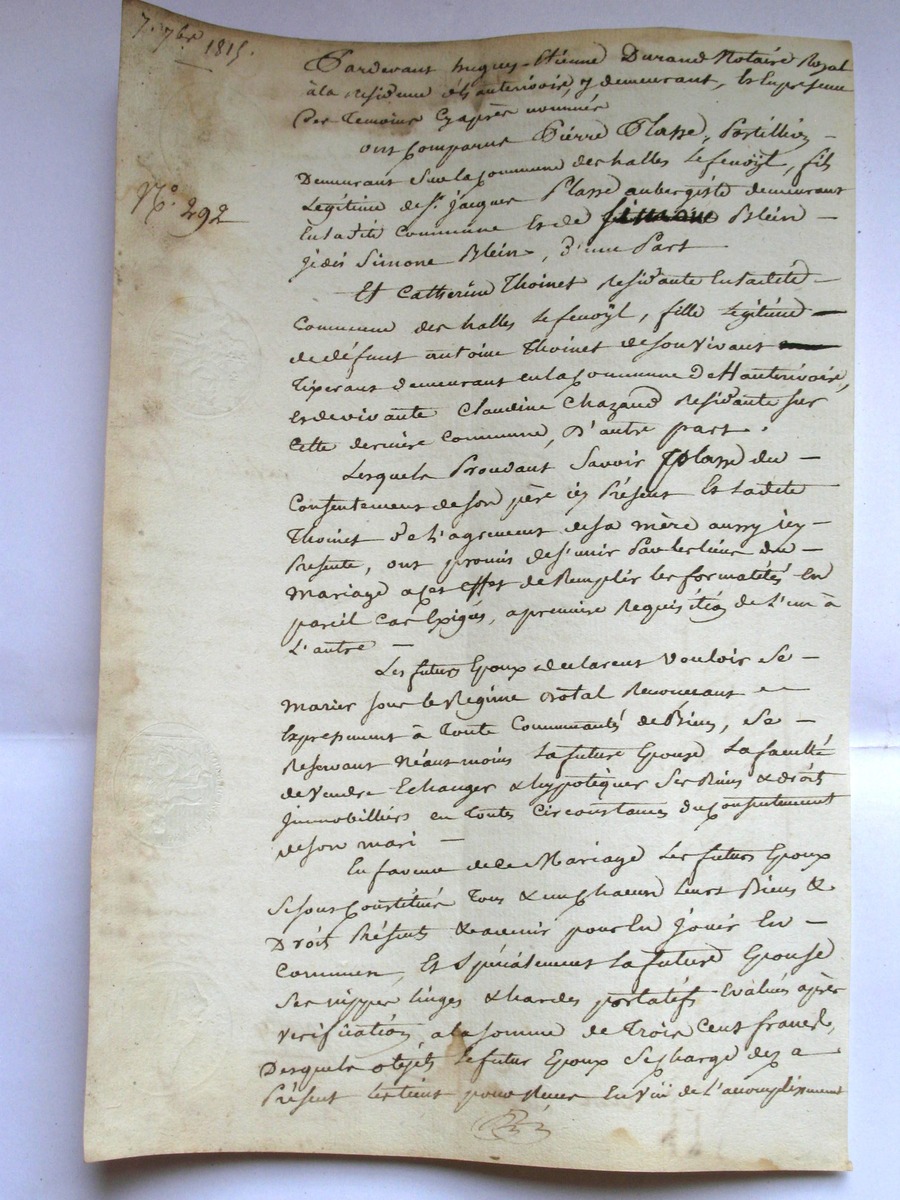 7. 7bre 1815.
N.° 292
Pardevant hugues-Etienne Durand Notaire Royal
à la residence d'hauterivoire, y demeurant, Et En présence
Des Temoins Cyaprès nommés
ont Comparus Pierre Plasse, Postillion
Demeurant Sur la Commune des halles Lefenoÿl, fils
Legitime de Sr. jacques Plasse aubergiste demeurant
En ladite Commune Et de Blein
jadis Simone Blein, D'une Part
Et Catherine Thoinet residante En ladite
Commune des halles Lefenoÿl, fille Legitime
de défunt antoine Thoinet de son vivant
Tixerant demeurant en la Commune D'Hauterivoire,
et de vivante Claudine Chazaud residante sur
Cette dernière Commune, D'autre part.
Lesquels Prouvant Savoir Plasse du
Consentement de son père icy Présent Et Ladite
Thoinet de L'agrement de sa mère aussy icy
Présente, ont promis de s'unir Par les liens du
mariage a cet effet de Remplir les formalités En
pareil Cas Exigés, a premiere Requisition de L'un à
L'autre
Les futurs Epoux declarent Vouloir Se
marier sous le Regime Dotal Renoncant
Expressement à Toute Communauté de Biens, Se
Reservant Néanmoins La future Epouse La faculté
de Vendre Echanger & hypotéquer Ses Biens & droits
Immobilliers en Toutes Circonstances du Consentement
de son mari
En faveur de Ce Mariage Les futurs Epoux
Se sont Constitués Tous & un Chacun Leurs Biens &
Droits Présents & avenir pour En Jouir En
Commun, Et Spécialement La future Epouse
Ses nippes linges & hardes portatifs Evalués après
Verification, a la somme de Trois Cent francs,
Desquels objets Le futur Epoux Se Charge des a
Présent Les tient pour En Vüe de L'accomplissement